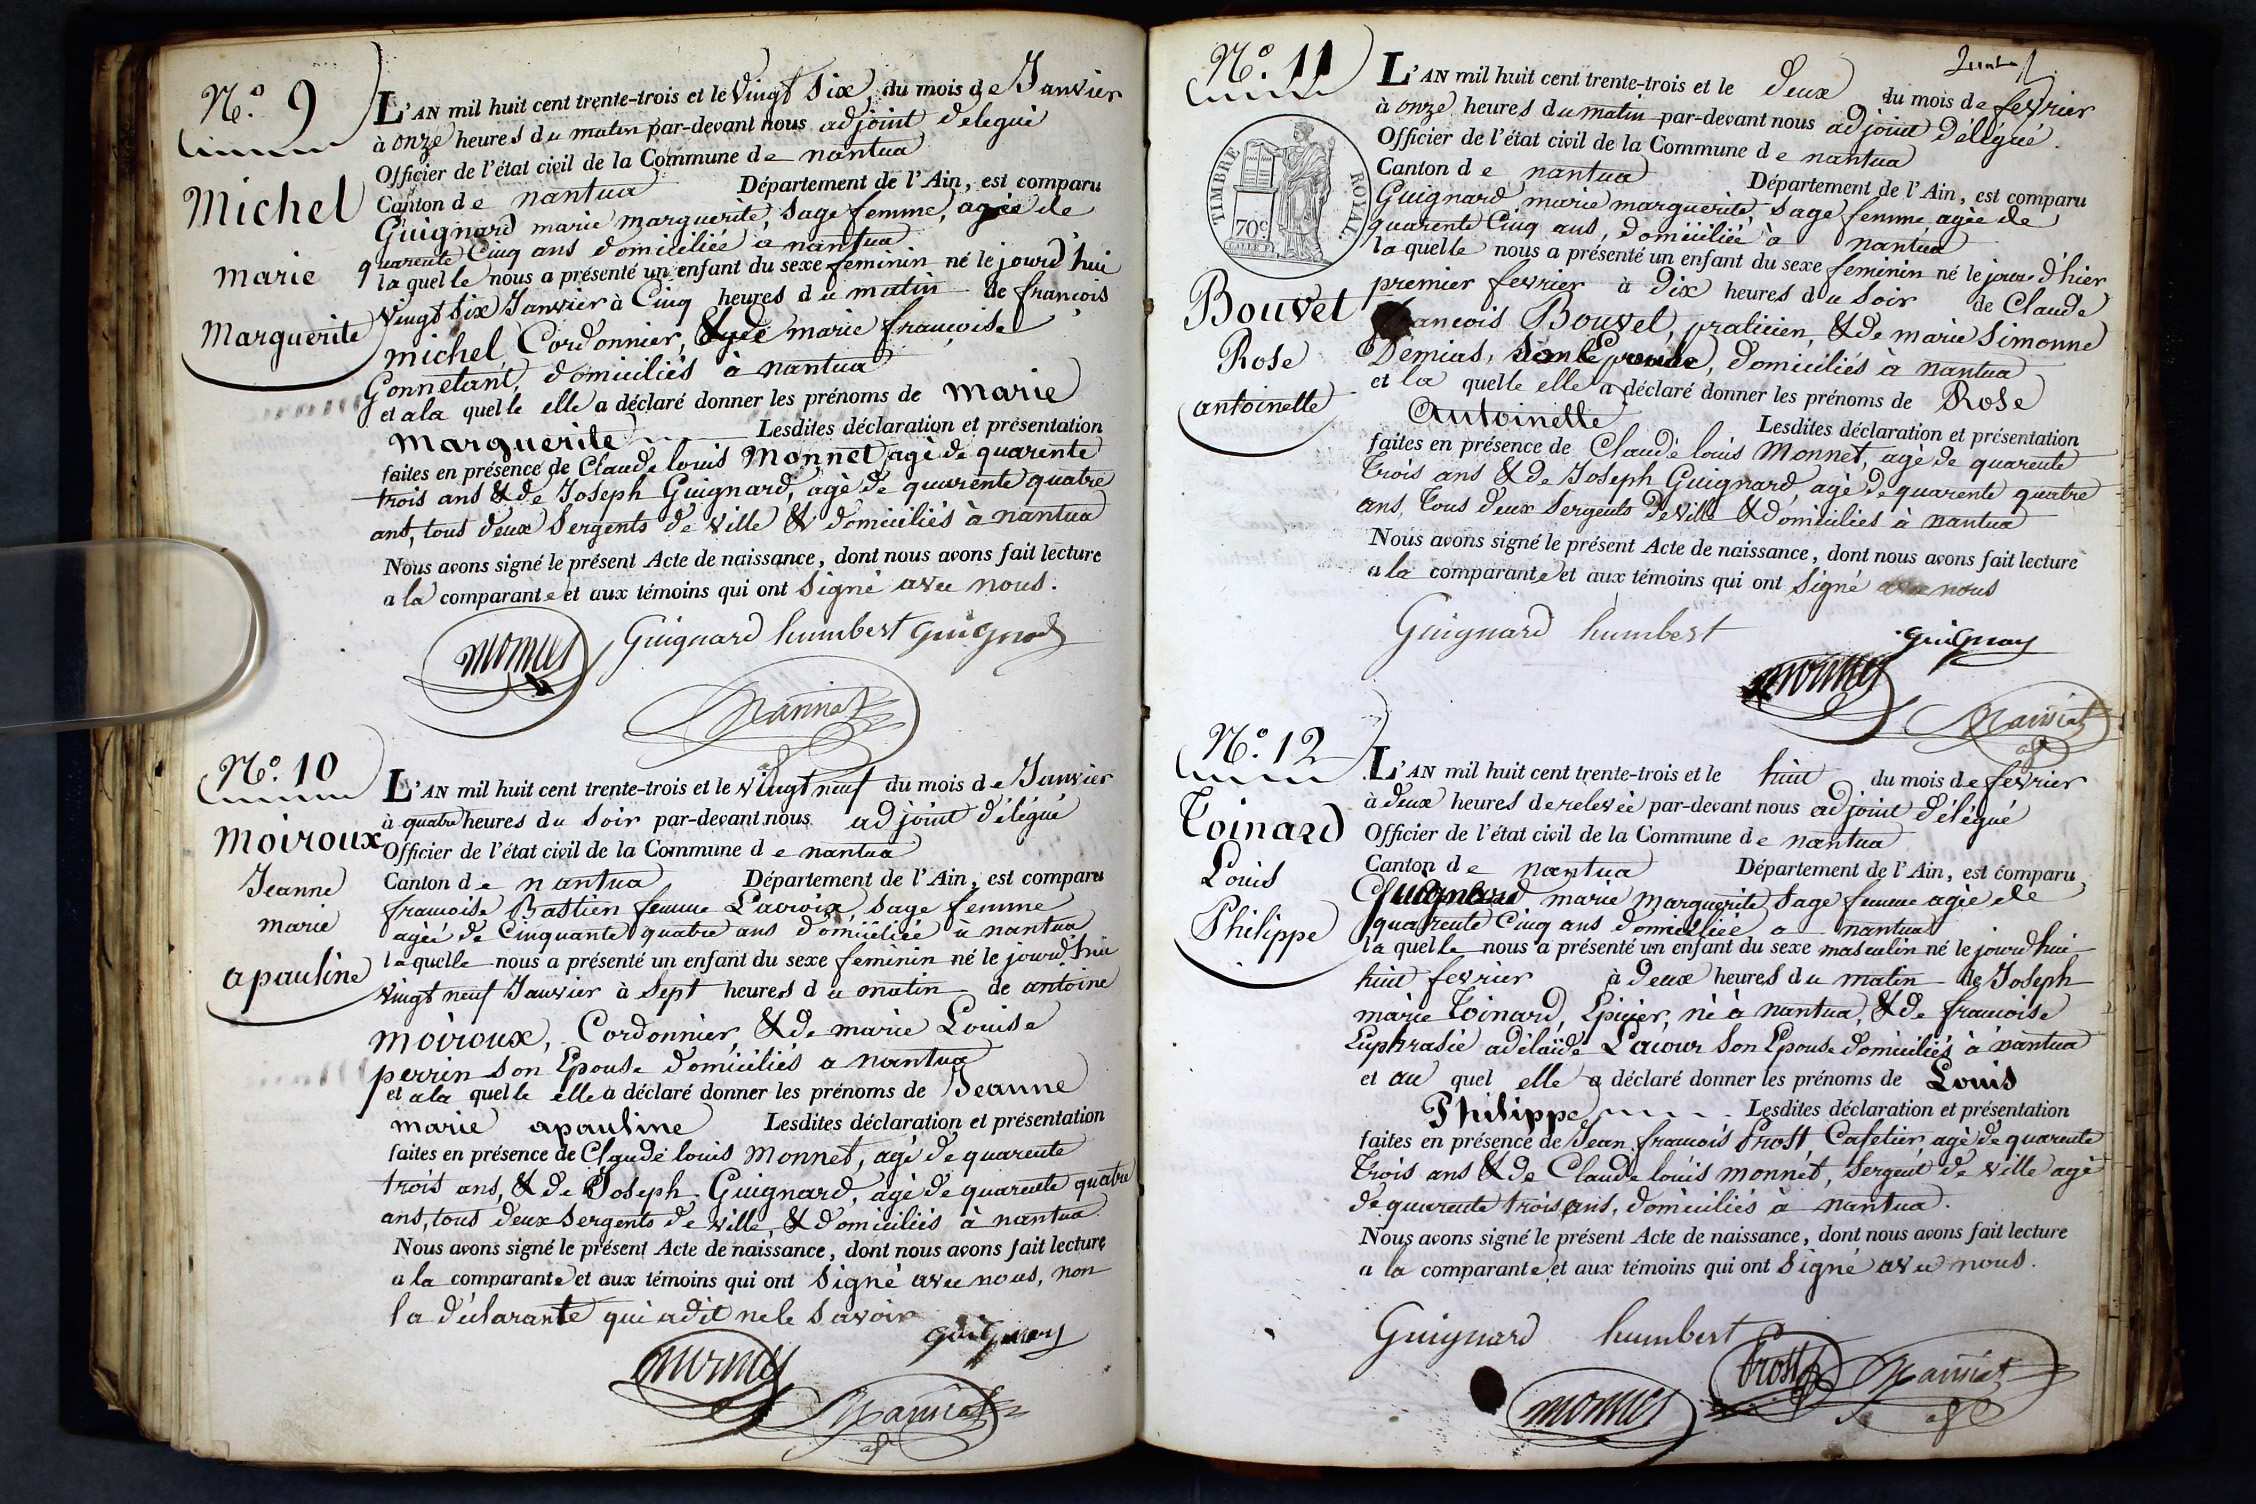 N.º 9
Michel
marie
Marguerite
L'AN mil huit cent trente-trois et le Vingt Six du mois de Janvier
à onze heures du matin par-devant nous adjoint délégué
Officier de l'état civil de la Commune de nantua
Canton de nantua Département de l'Ain, est comparu
Guignard marie marguerite, Sage femme, agée de
quarente Cinq ans domiciliée à nantua
laquelle nous a présenté un enfant du sexe feminin né le jourd'hui
Vingt Six Janvier à Cinq heures du matin de françois
michel, Cordonnier, & de marie françoise
Gonnetant, domiciliés à nantua
et a la quelle elle a déclaré donner les prénoms de marie
marguerite Lesdites déclaration et présentation
faites en présence de Claude louis Monnet agé de quarente
trois ans & de Joseph Guignard, agé de quarente quatre
ans, tous deux Sergents de Ville & domiciliés à nantua
Nous avons signé le présent Acte de naissance, dont nous avons fait lecture
a la comparante et aux témoins qui ont Signé avec nous.
monnet Guignard humbert Guignard
N.º 10
Moiroux
Jeanne
marie
apauline
L'AN mil huit cent trente-trois et le vingt neuf du mois de Janvier
à quatre heures du Soir par-devant nous adjoint délégué
Officier de l'état civil de la Commune de nantua
Canton de nantua Département de l'Ain, est comparu
francoise Bastien femme Lacroix, sage femme
agée de Cinquante quatre ans domiciliée à nantua
laquelle nous a présenté un enfant du sexe feminin né le jourd'hui
vingt neuf Janvier à Sept heures du matin de antoine
moiroux, Cordonnier, & de marie Louise
perrin son Epouse domiciliés a nantua
et a la quelle elle a déclaré donner les prénoms de Jeanne
marie apauline Lesdites déclaration et présentation
faites en présence de Claude louis Monnet, agé de quarente
trois ans, & de Joseph Guignard, agé de quarente quatre
ans, tous deux Sergents de ville, & domiciliés à nantua
Nous avons signé le présent Acte de naissance, dont nous avons fait lecture
a la comparante et aux témoins qui ont Signé avec nous, non
la déclarante qui a dit ne le Savoir
monnet
N.º 11
TIMBRE ROYAL
70c
Bouvet
Rose
antoinette
L'AN mil huit cent trente-trois et le deux du mois de fevrier
à onze heures du matin par-devant nous adjoint délégué.
Officier de l'état civil de la Commune de nantua
Canton de nantua Département de l'Ain, est comparu
Guignard marie marguerite, Sage femme agée de
quarente Cinq ans, domiciliée à nantua
laquelle nous a présenté un enfant du sexe feminin né le jour d'hier
premier fevrier à Dix heures du Soir de Claude
francois Bouvet, praticien, & de marie Simonne
Demias, Son Epouse, domiciliés à nantua
et la quelle elle a déclaré donner les prénoms de Rose
Antoinette Lesdites déclaration et présentation
faites en présence de Claude louis Monnet, agé de quarente
trois ans & de Joseph Guignard agé de quarente quatre
ans, Tous deux Sergents de Ville & domiciliés à nantua
Nous avons signé le présent Acte de naissance, dont nous avons fait lecture
a la comparante et aux témoins qui ont Signé avec nous
Guignard humbert
monnet
N.º 12
Toinard
Louis
Philippe
L'AN mil huit cent trente-trois et le huit du mois de fevrier
à deux heures de relevée par-devant nous adjoint délégué
Officier de l'état civil de la Commune de nantua
Canton de nantua Département de l'Ain, est comparu
Guignard marie marguerite Sage femme agée de
quarente Cinq ans domiciliée a nantua
laquelle nous a présenté un enfant du sexe masculin né le jourd'hui
huit fevrier à deux heures du matin de Joseph
marie Toinard, Epicier, né à nantua, & de francoise
Euphrasie adélaïde Lacour Son Epouse domiciliés à nantua
et au quel elle a déclaré donner les prénoms de Louis
Philippe Lesdites déclaration et présentation
faites en présence de Jean francois Prost Cafetier agé de quarente
trois ans & de Claude louis monnet, Sergent de ville agé
de quarente trois ans, domiciliés à nantua.
Nous avons signé le présent Acte de naissance, dont nous avons fait lecture
a la comparante et aux témoins qui ont Signé avec nous.
Guignard humbert
monnet Prost